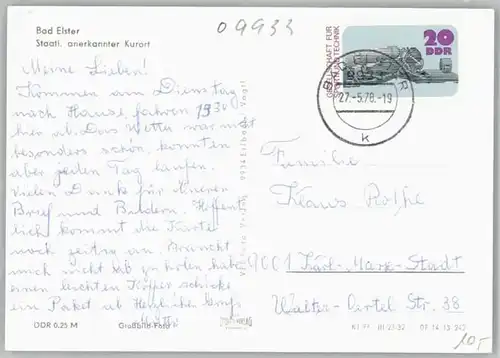 09933
Bad Elster
Staatl. anerkannter Kurort
Meine Lieben!
Kommen am Dienstag
nach Hause, fahren 19³⁰
hier ab. Das Wetter war nicht
besonders schön, konnten
aber jeden Tag laufen.
Vielen Dank für Eueren
Brief und Bildern. Hoffent
lich kommt die Karte
noch zeitig an. Braucht
mich nicht ab zu holen, habe
einen leichten Koffer, schicke
ein Paket ab Herzliche Grüße
Mutti
DDR 0,25 M
Großbild-Foto
GESELLSCHAFT FÜR
SPORT UND TECHNIK
20
DDR
27.-5.78.-19
k
Familie
Klaus Rothe
9001 Karl-Marx-Stadt
Walter-Oertel Str. 38
07 14 13 242
10,-